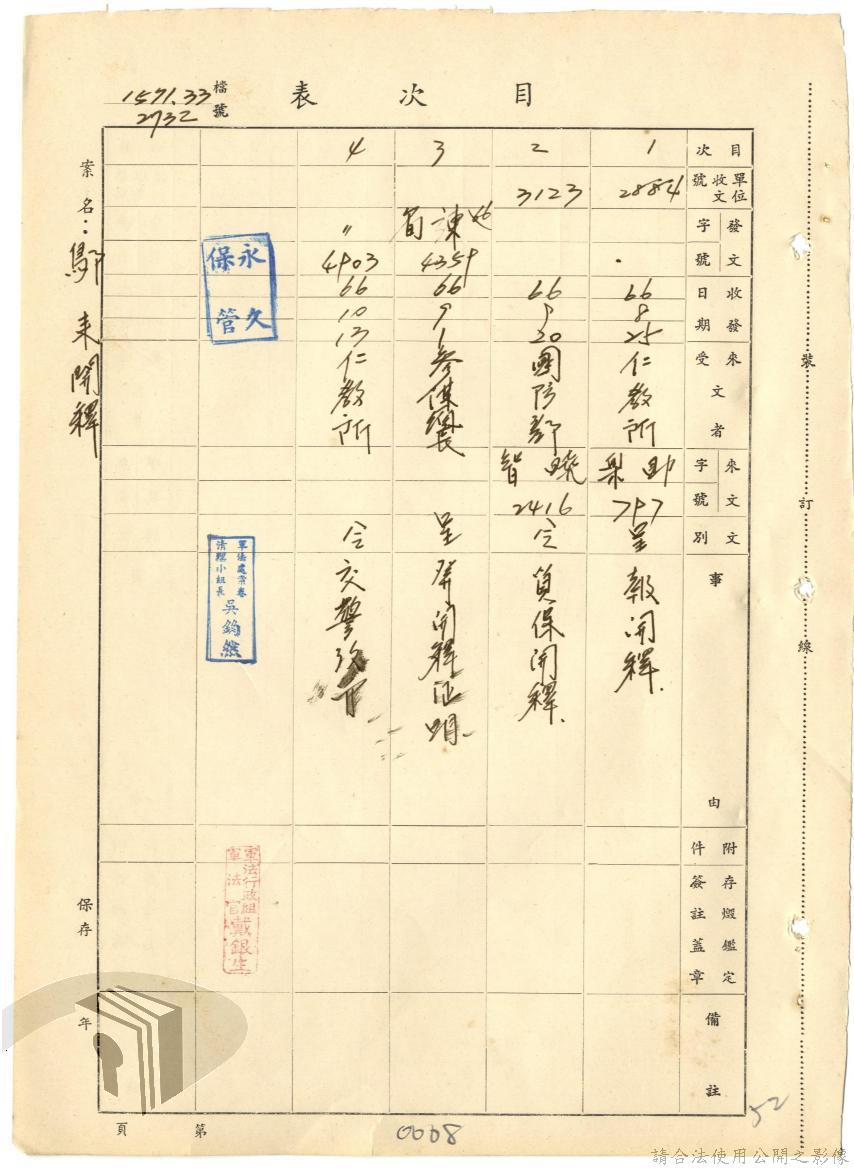 目次表
檔號
1571.33
2732
案名：鄔來開釋
目次
單位收文號
發文字號
收發日期
來文受者
來文字號
文別
事由
附件
存燬鑑定簽註蓋章
備註
1
2884
66
8
25
仁教所
797
呈
報開釋
2
3123
66
9
20
國防部
2416
令
覓保開釋
3
4359
66
9
1
參謀總長
呈
開釋證明
4
〃
4903
66
10
13
仁教所
令
永久保管
軍法處案卷清理小組長
吳鈞然
軍法行政組軍法官
戴銀生
裝
訂
線
保存
年
第
頁
0008
52
請合法使用公開之影像